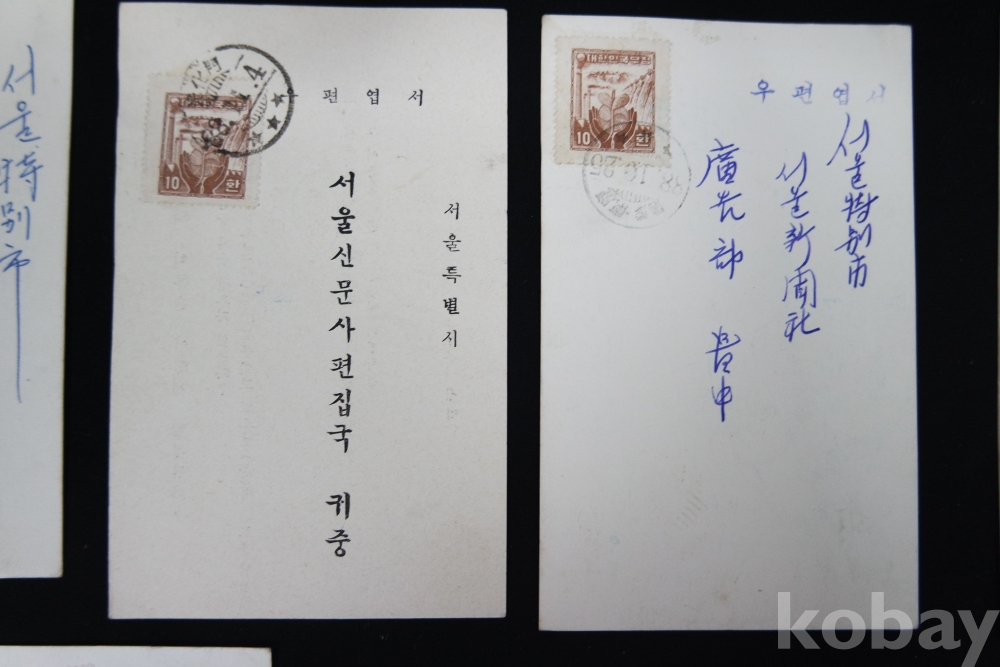 서울特別市
우편엽서
서울특별시
서울신문사편집국 귀중
10 한
대한민국우표
10 한
우편엽서
서울特別市
서울新聞社
廣告部 貴中
88.10.25
kobay